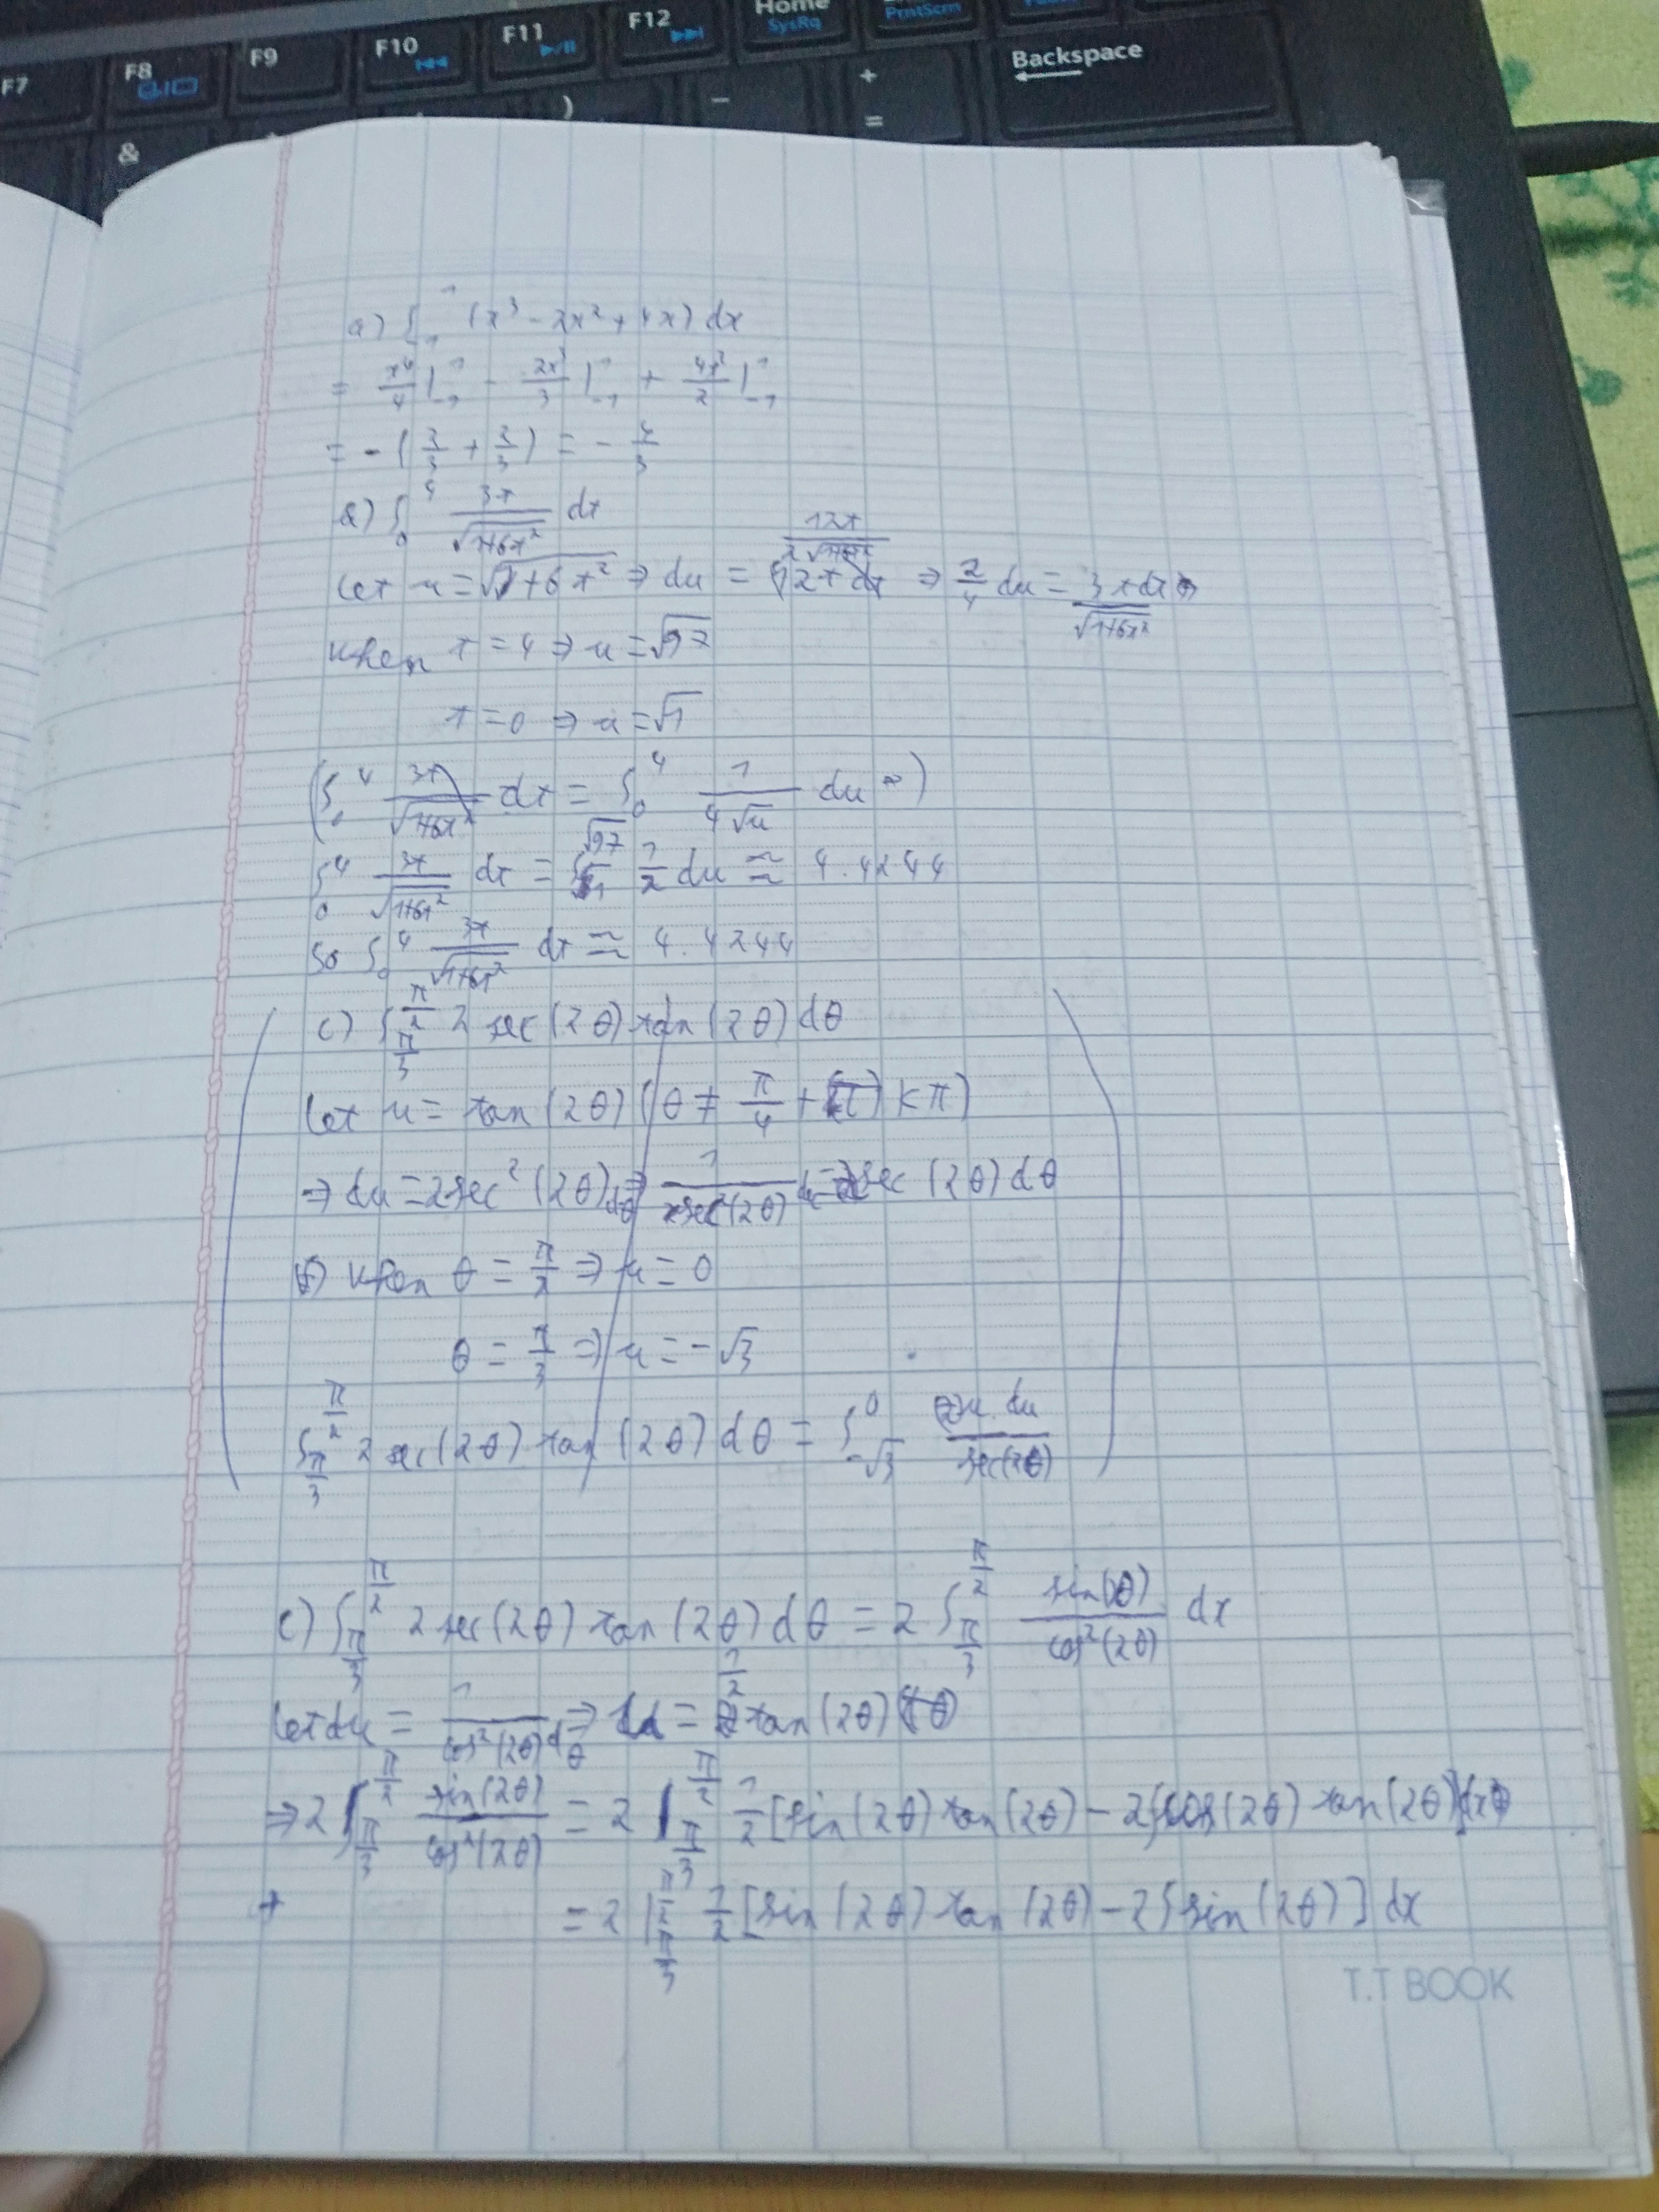 F7 F8 F9 F10 F11 F12 Home SysRq PrntScrn
& ) - + = Backspace
a) ∫_{-1}^{1} (x³ - 2x² + 4x) dx
= x⁴/4 |_{-1}^{1} - 2x³/3 |_{-1}^{1} + 4x²/2 |_{-1}^{1}
= - (2/3 + 2/3) = - 4/3
b) ∫_0^4 3x/√(1+6x²) dx
Let u = √(1+6x²) ⇒ du = 12x/(2√(1+6x²)) dx ⇒ 2/4 du = 3x dx/√(1+6x²)
when x = 4 ⇒ u = √97
x = 0 ⇒ u = √1
(∫_0^4 3x/√(1+6x²) dx = ∫_0^4 1/(4√u) du)
∫_0^4 3x/√(1+6x²) dx = ∫_{√1}^{√97} 1/2 du ≈ 4.4244
So ∫_0^4 3x/√(1+6x²) dx ≈ 4.4244
c) ∫_{π/3}^{π/2} 2 sec(2θ) tan(2θ) dθ
Let u = tan(2θ) (θ ≠ π/4 + kπ)
⇒ du = 2sec²(2θ) dθ ⇒ 1/(2sec(2θ)) du = sec(2θ) dθ
when θ = π/2 ⇒ u = 0
θ = π/3 ⇒ u = -√3
∫_{π/3}^{π/2} 2 sec(2θ) tan(2θ) dθ = ∫_{-√3}^{0} u du/sec(2θ)
c) ∫_{π/3}^{π/2} 2 sec(2θ) tan(2θ) dθ = 2 ∫_{π/3}^{π/2} sin(2θ)/cos²(2θ) dx
Let du = 1/cos²(2θ) dθ ⇒ u = 1/2 tan(2θ)
⇒ 2 ∫_{π/3}^{π/2} sin(2θ)/cos²(2θ) = 2 |_{π/3}^{π/2} 1/2 [sin(2θ) tan(2θ) - 2∫cos(2θ) tan(2θ)] dx
= 2 |_{π/3}^{π/2} 1/2 [sin(2θ) tan(2θ) - 2∫sin(2θ)] dx
T.T BOOK